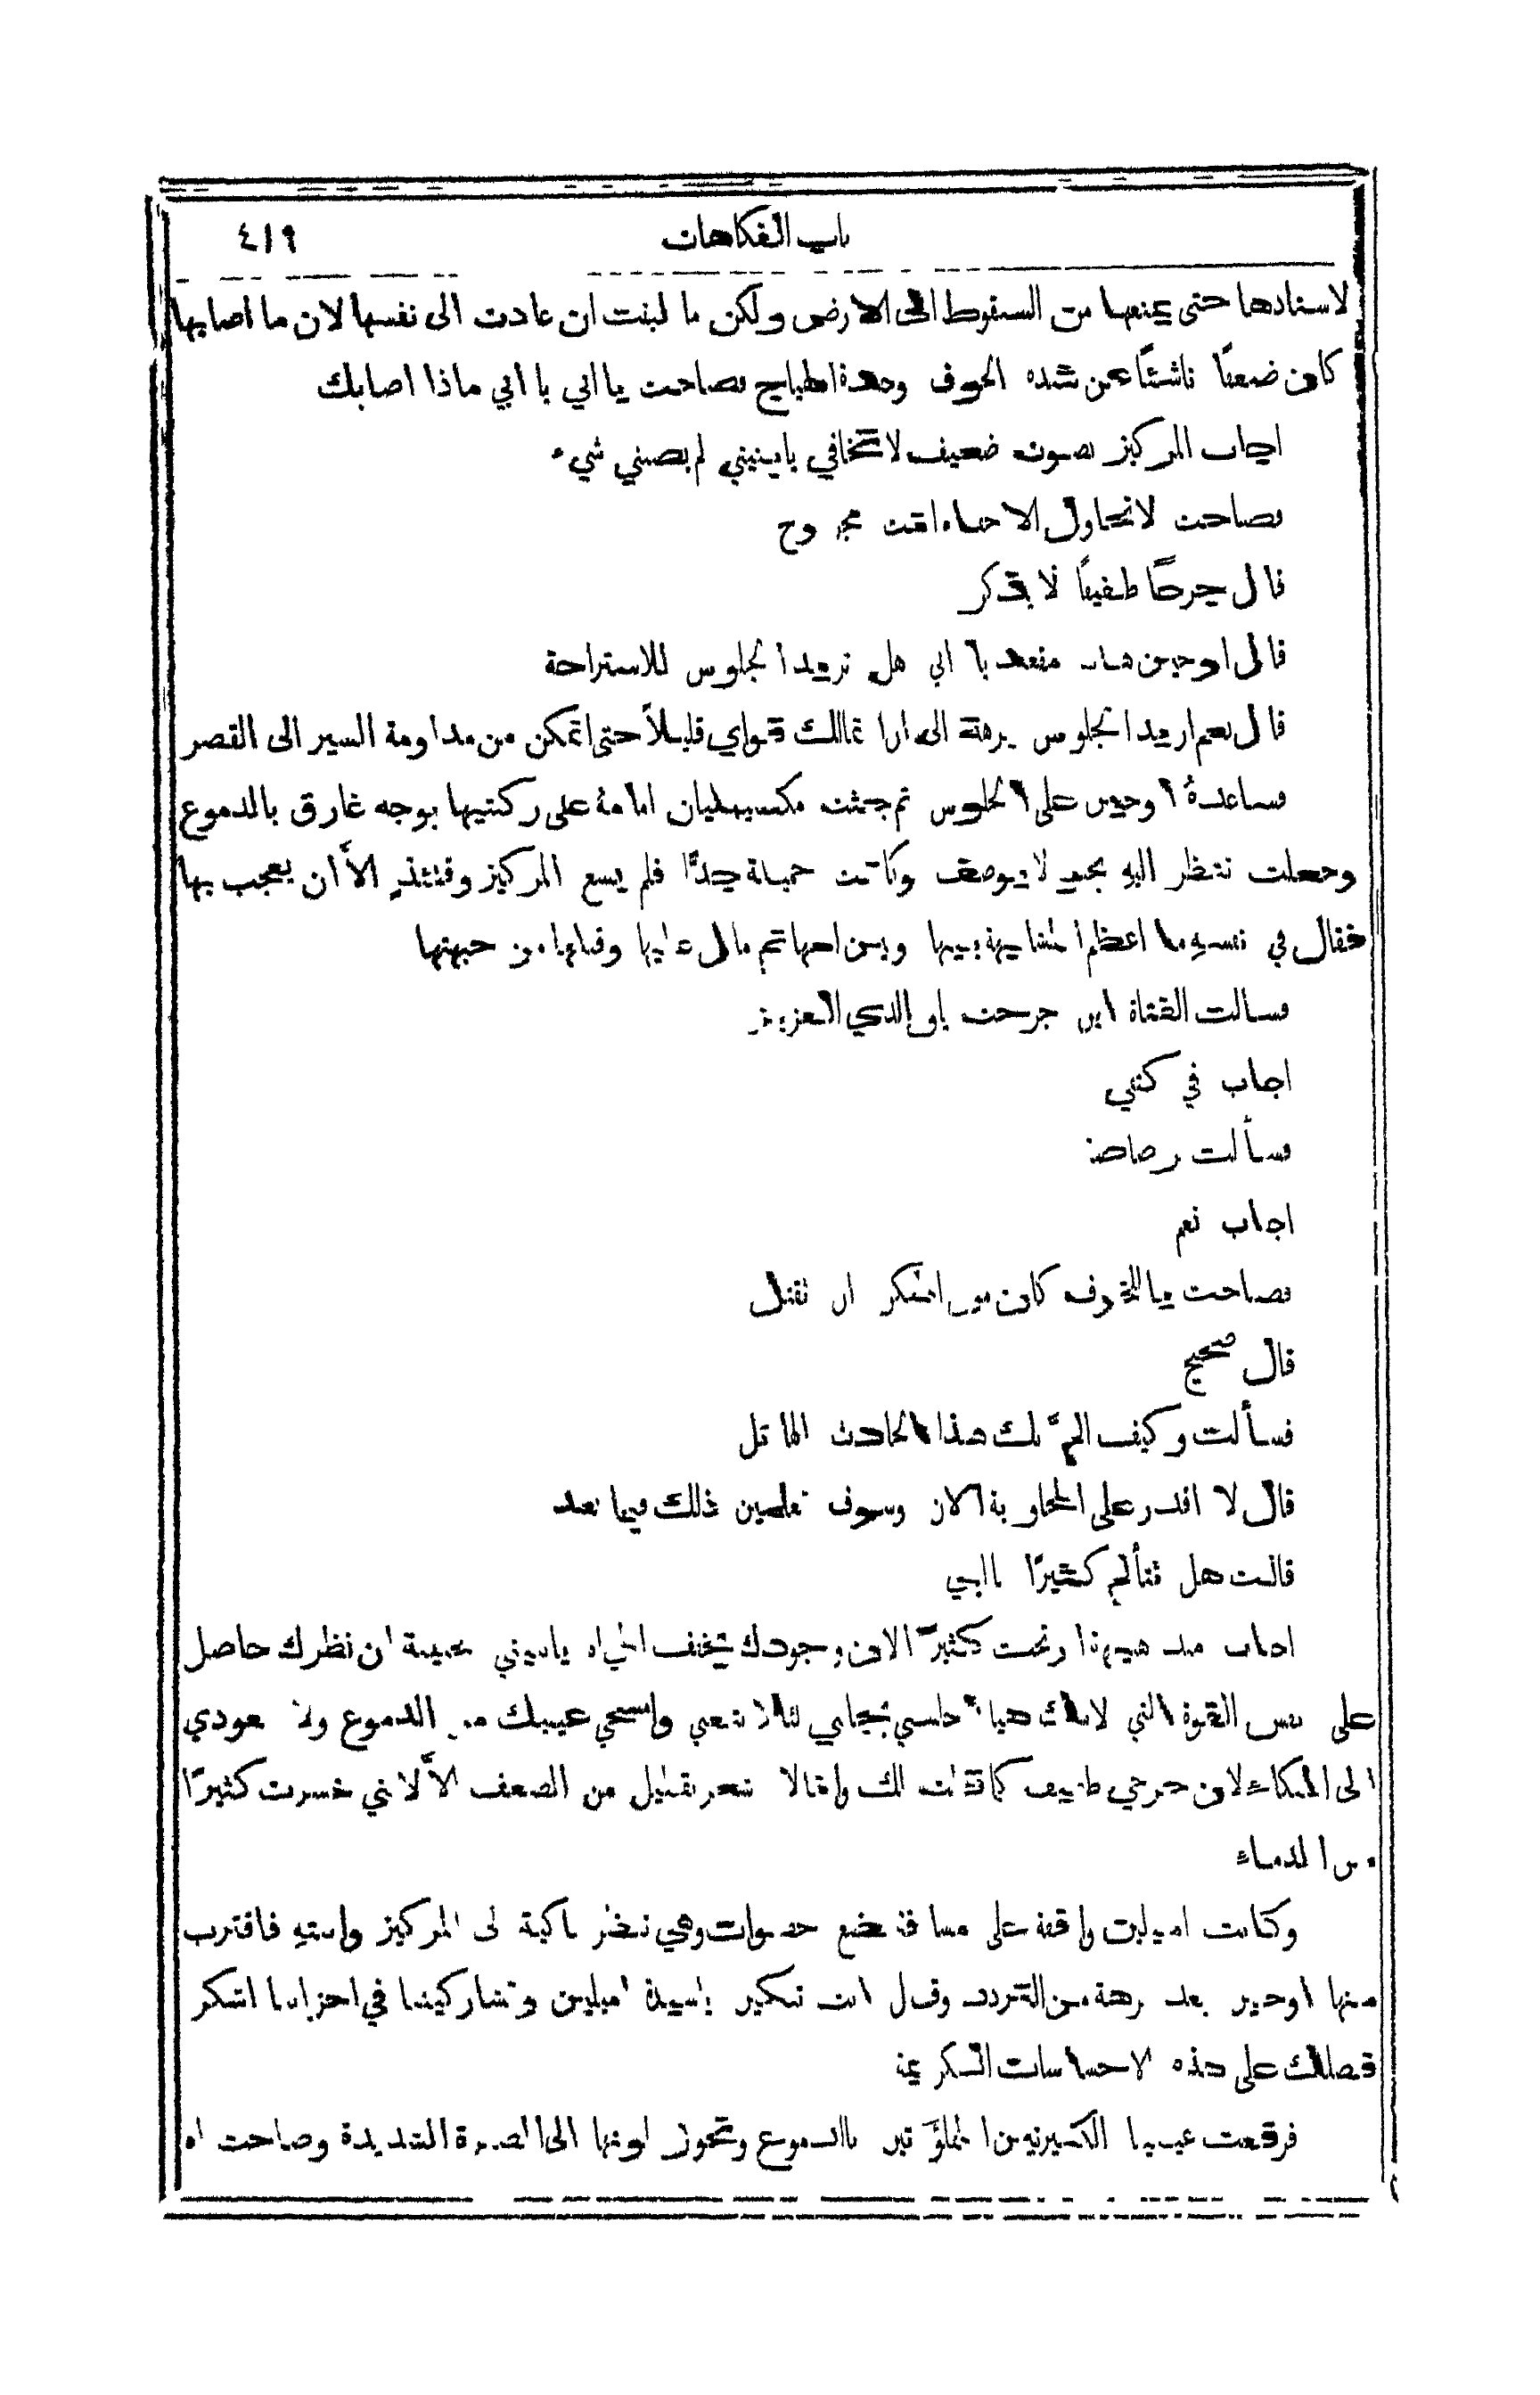 باب الفكاهات ٤١٩
لاسنادها حتى يمنعها من السقوط الى الارض ولكن ما لبثت ان عادت الى نفسها لان ما اصابها
كان ضعفًا ناشئًا عن شدة الخوف وحدة الهياج فصاحت يا ابي يا ابي ماذا اصابك
اجاب المركيز بصوت ضعيف لا تخافي يا بنيتي لم يصبني شيء
فصاحت لا تحاول الاخفاء انت مجروح
قال جرحًا طفيفًا لا يذكر
قال اوجين هنا مقعد يا ابي هل تريد الجلوس للاستراحة
قال نعم اريد الجلوس برهة الى ان اتمالك قواي قليلاً حتى اتمكن من مداومة السير الى القصر
فساعدهُ اوجين على الجلوس ثم جثت مكسيمليان امامهُ على ركبتيها بوجه غارق بالدموع
وجعلت تنظر اليهِ بحب لا يوصف وكانت جميلة جدًّا فلم يسع المركيز وقتئذٍ الاَّ ان يعجب بها
فقال في نفسهِ ما اعظم المشابهة بينها وبين امها ثم مال عليها وقبلها من جبهتها
فسالت الفتاة اين جرحت يا والدي العزيز
اجاب في كتفي
فسألت برصاصة
اجاب نعم
فصاحت يا للخوف كان من الممكن ان تقتل
قال صحيح
فسألت وكيف المَّ بك هذا الحادث الهائل
قال لا اقدر على المجاوبة الان وسوف تعلمين ذلك فيما بعد
قالت هل تتألم كثيرًا يا ابي
اجاب منذ هنيهة ارتحت كثيرًا لان وجودك يخفف الحياة يا بنيتي عجيبة ان نظرك حاصل
على نفس القوة التي لامك هيا اجلسي بجانبي لئلا تتعبي وامسحي عينيك من الدموع ولا تعودي
الى البكاء لان جرحي طفيف كما قلت لك وانا لا اشعر بقليل من الضعف الاَّ لانني خسرت كثيرًا
من الدماء
وكانت اميلين واقفة على مسافة بضع خطوات وهي تنظر باكية الى المركيز وابنتهِ فاقترب
منها اوجين بعد برهة من التردد وقال انت تبكين يا سيدة اميلين وتشاركيننا في احزاننا اشكر
فضلك على هذه الاحساسات الكريمة
فرفعت عينيها الكبيرتين المملؤتين بالدموع وتحول لونها الى الصفرة الشديدة وصاحت اه